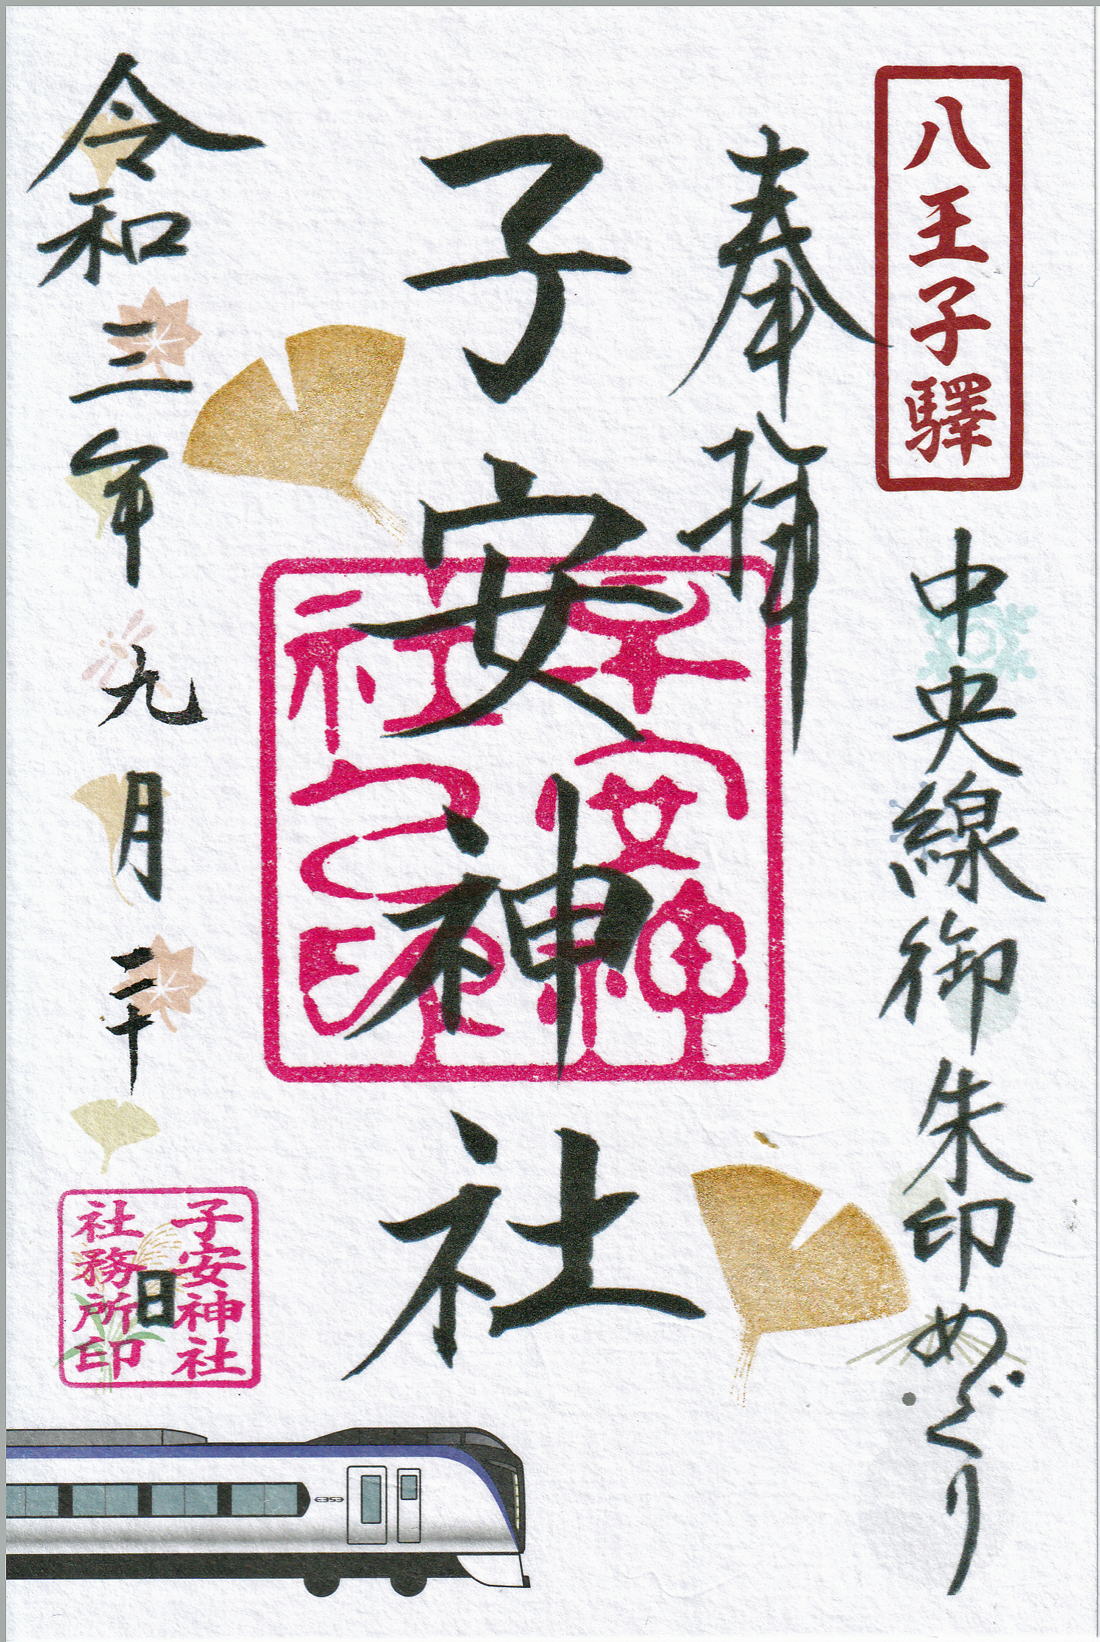 八王子驛
中央線御朱印めぐり
奉拝
子安神社
子安神社印
令和三年九月二十日
子安神社
社務所印
E353